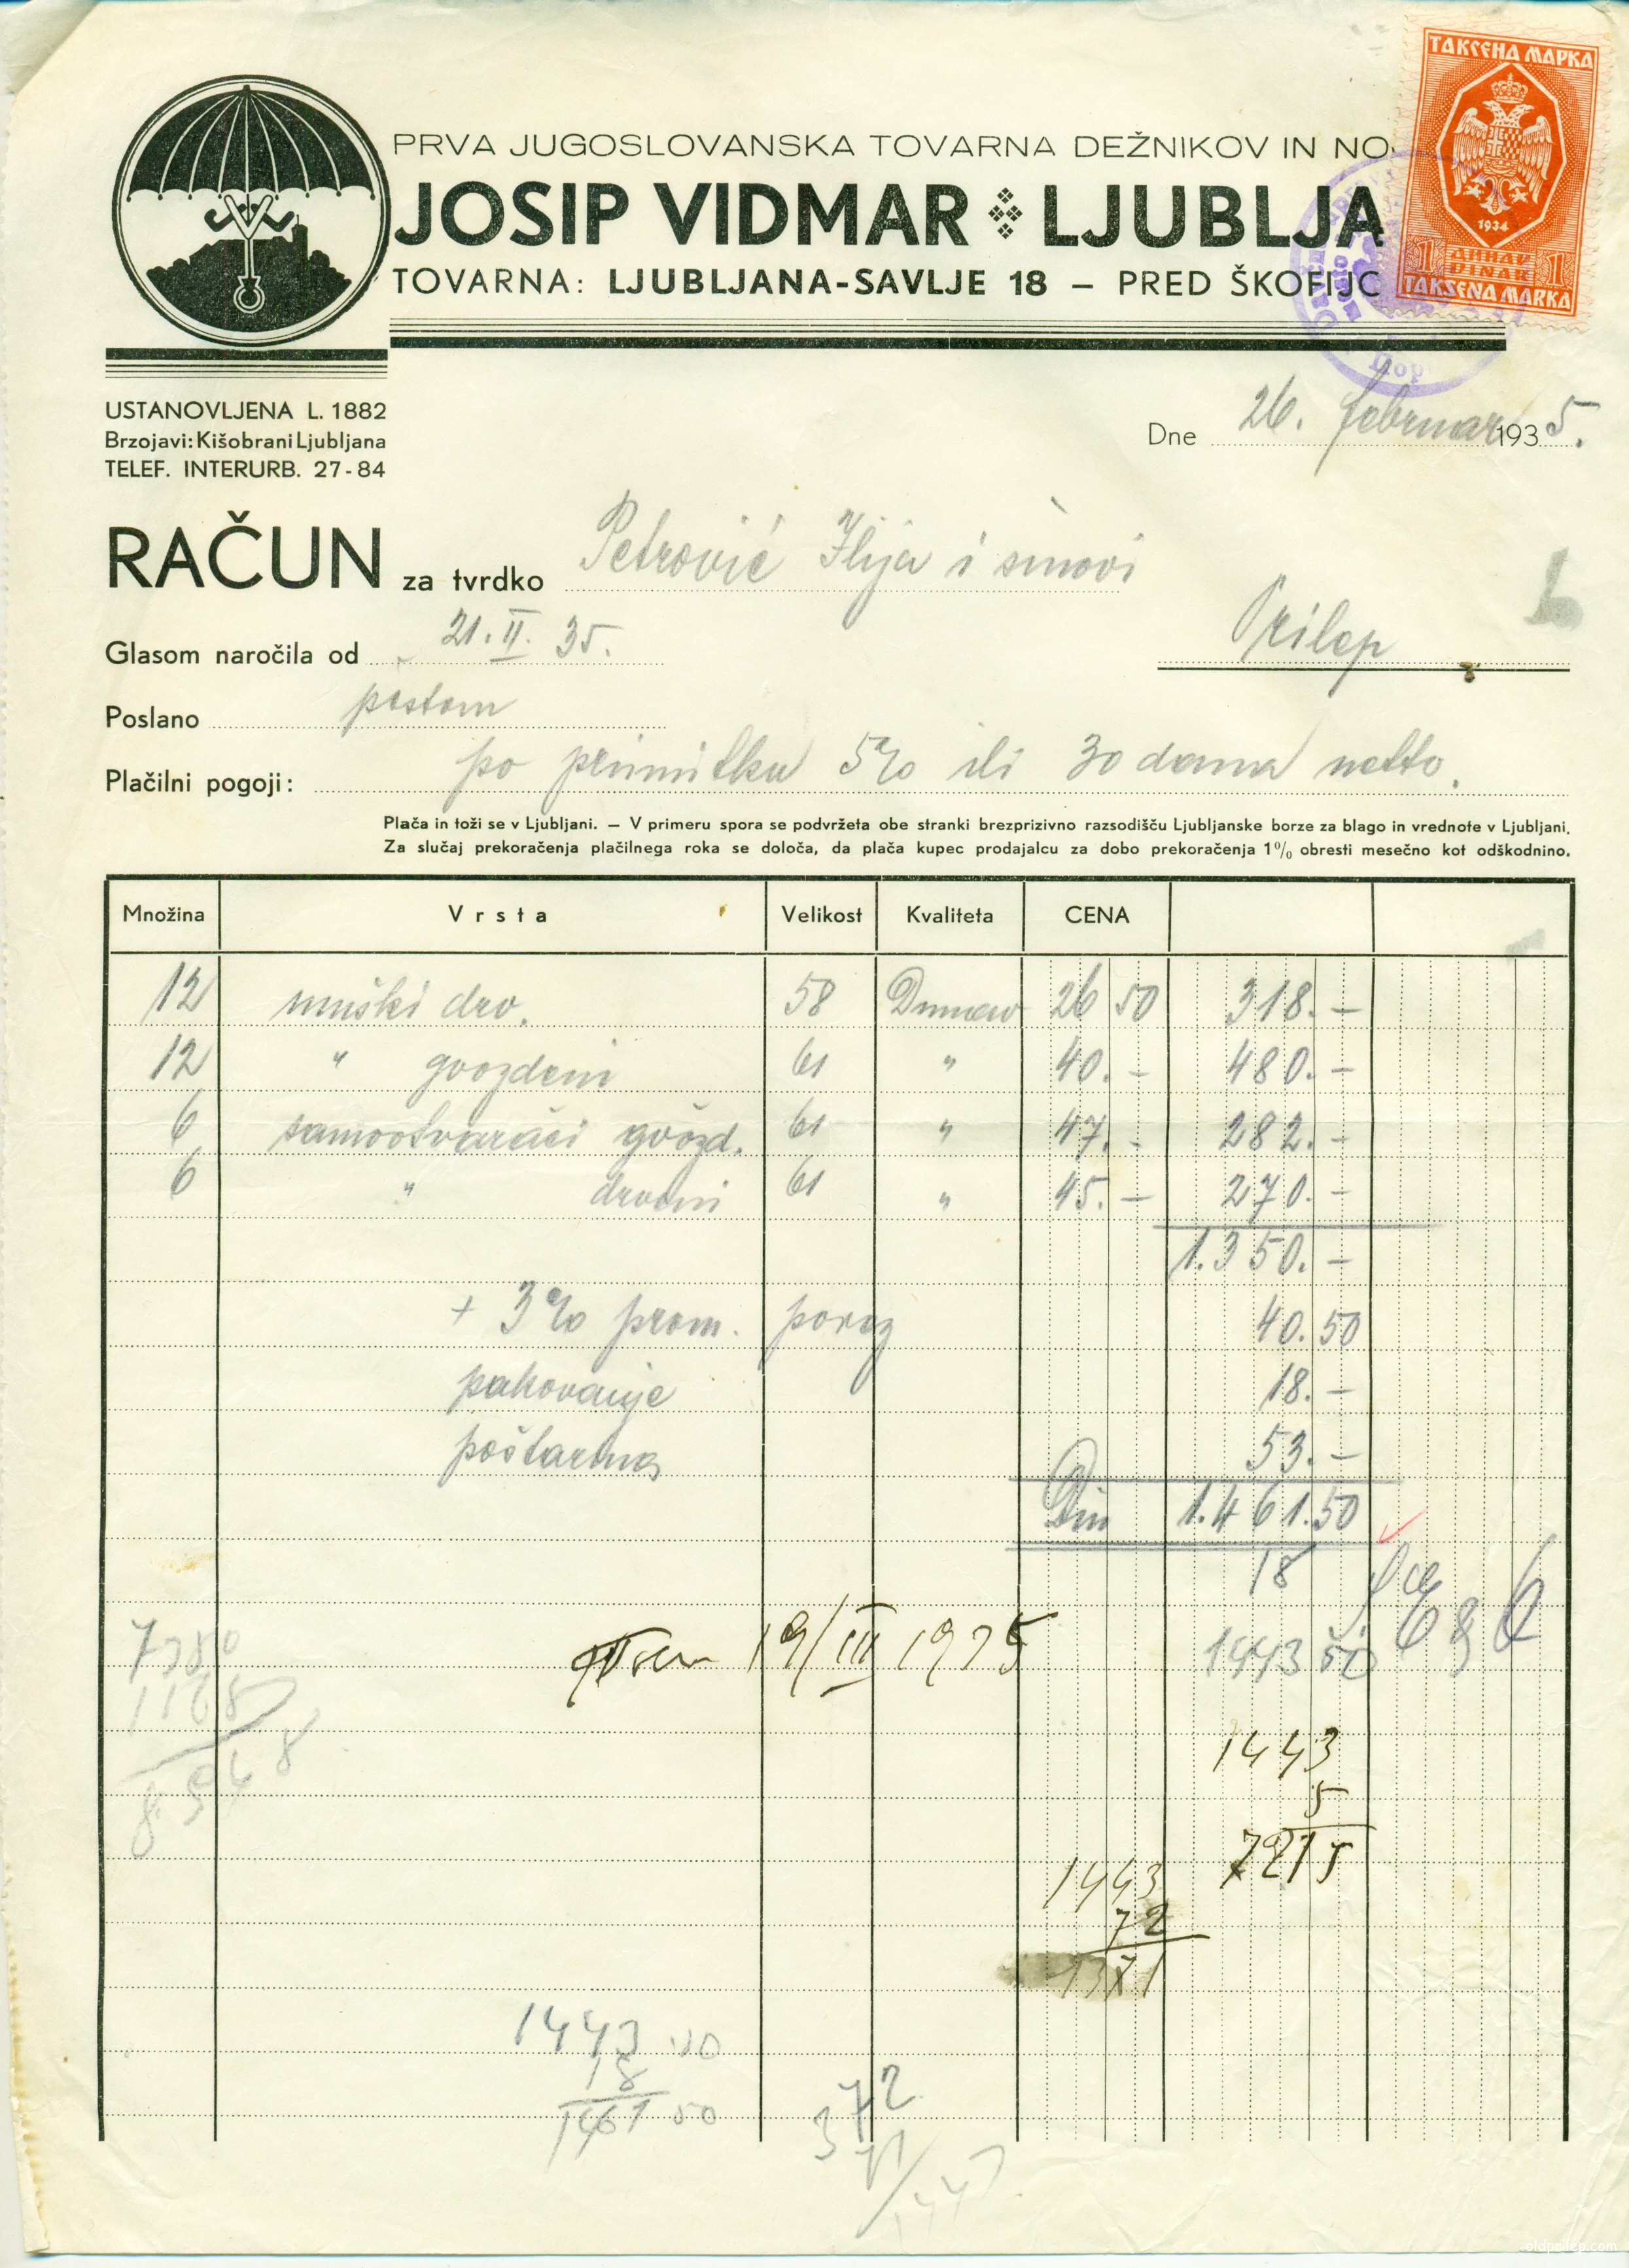 ТАКСЕНА МАРКА
1934
1 ДИНАР 1
DINAR
TAKSENA MARKA
PRVA JUGOSLOVANSKA TOVARNA DEŽNIKOV IN NO
JOSIP VIDMAR LJUBLJA
TOVARNA: LJUBLJANA-SAVLJE 18 – PRED ŠKOFIJO
USTANOVLJENA L. 1882
Brzojavi: Kišobrani Ljubljana
TELEF. INTERURB. 27-84
Dne 26. februar 1935.
RAČUN za tvrdko Petrović Ilija i sinovi
Prilep
Glasom naročila od 21. II. 35.
Poslano poštom
Plačilni pogoji: po primitku 5% ili 30 dana netto.
Plača in toži se v Ljubljani. — V primeru spora se podvržeta obe stranki brezprizivno razsodišču Ljubljanske borze za blago in vrednote v Ljubljani.
Za slučaj prekoračenja plačilnega roka se določa, da plača kupec prodajalcu za dobo prekoračenja 1% obresti mesečno kot odškodnino.
Množina Vrsta Velikost Kvaliteta CENA
12 muški drv. 58 Dunav 26 50 318.–
12 " gvozdeni 61 " 40.– 480.–
6 samootvarači gvozd. 61 " 47.– 282.–
6 " drveni 61 " 45.– 270.–
1.350.–
+ 3% prom. porez 40.50
pakovanje 18.–
poštarina 53.–
Din 1.461.50
18
19/III 1935
1443 50
7380
1168
8548
1443
5
7215
1443
72
1371
1443 50
18
1461 50
372
71